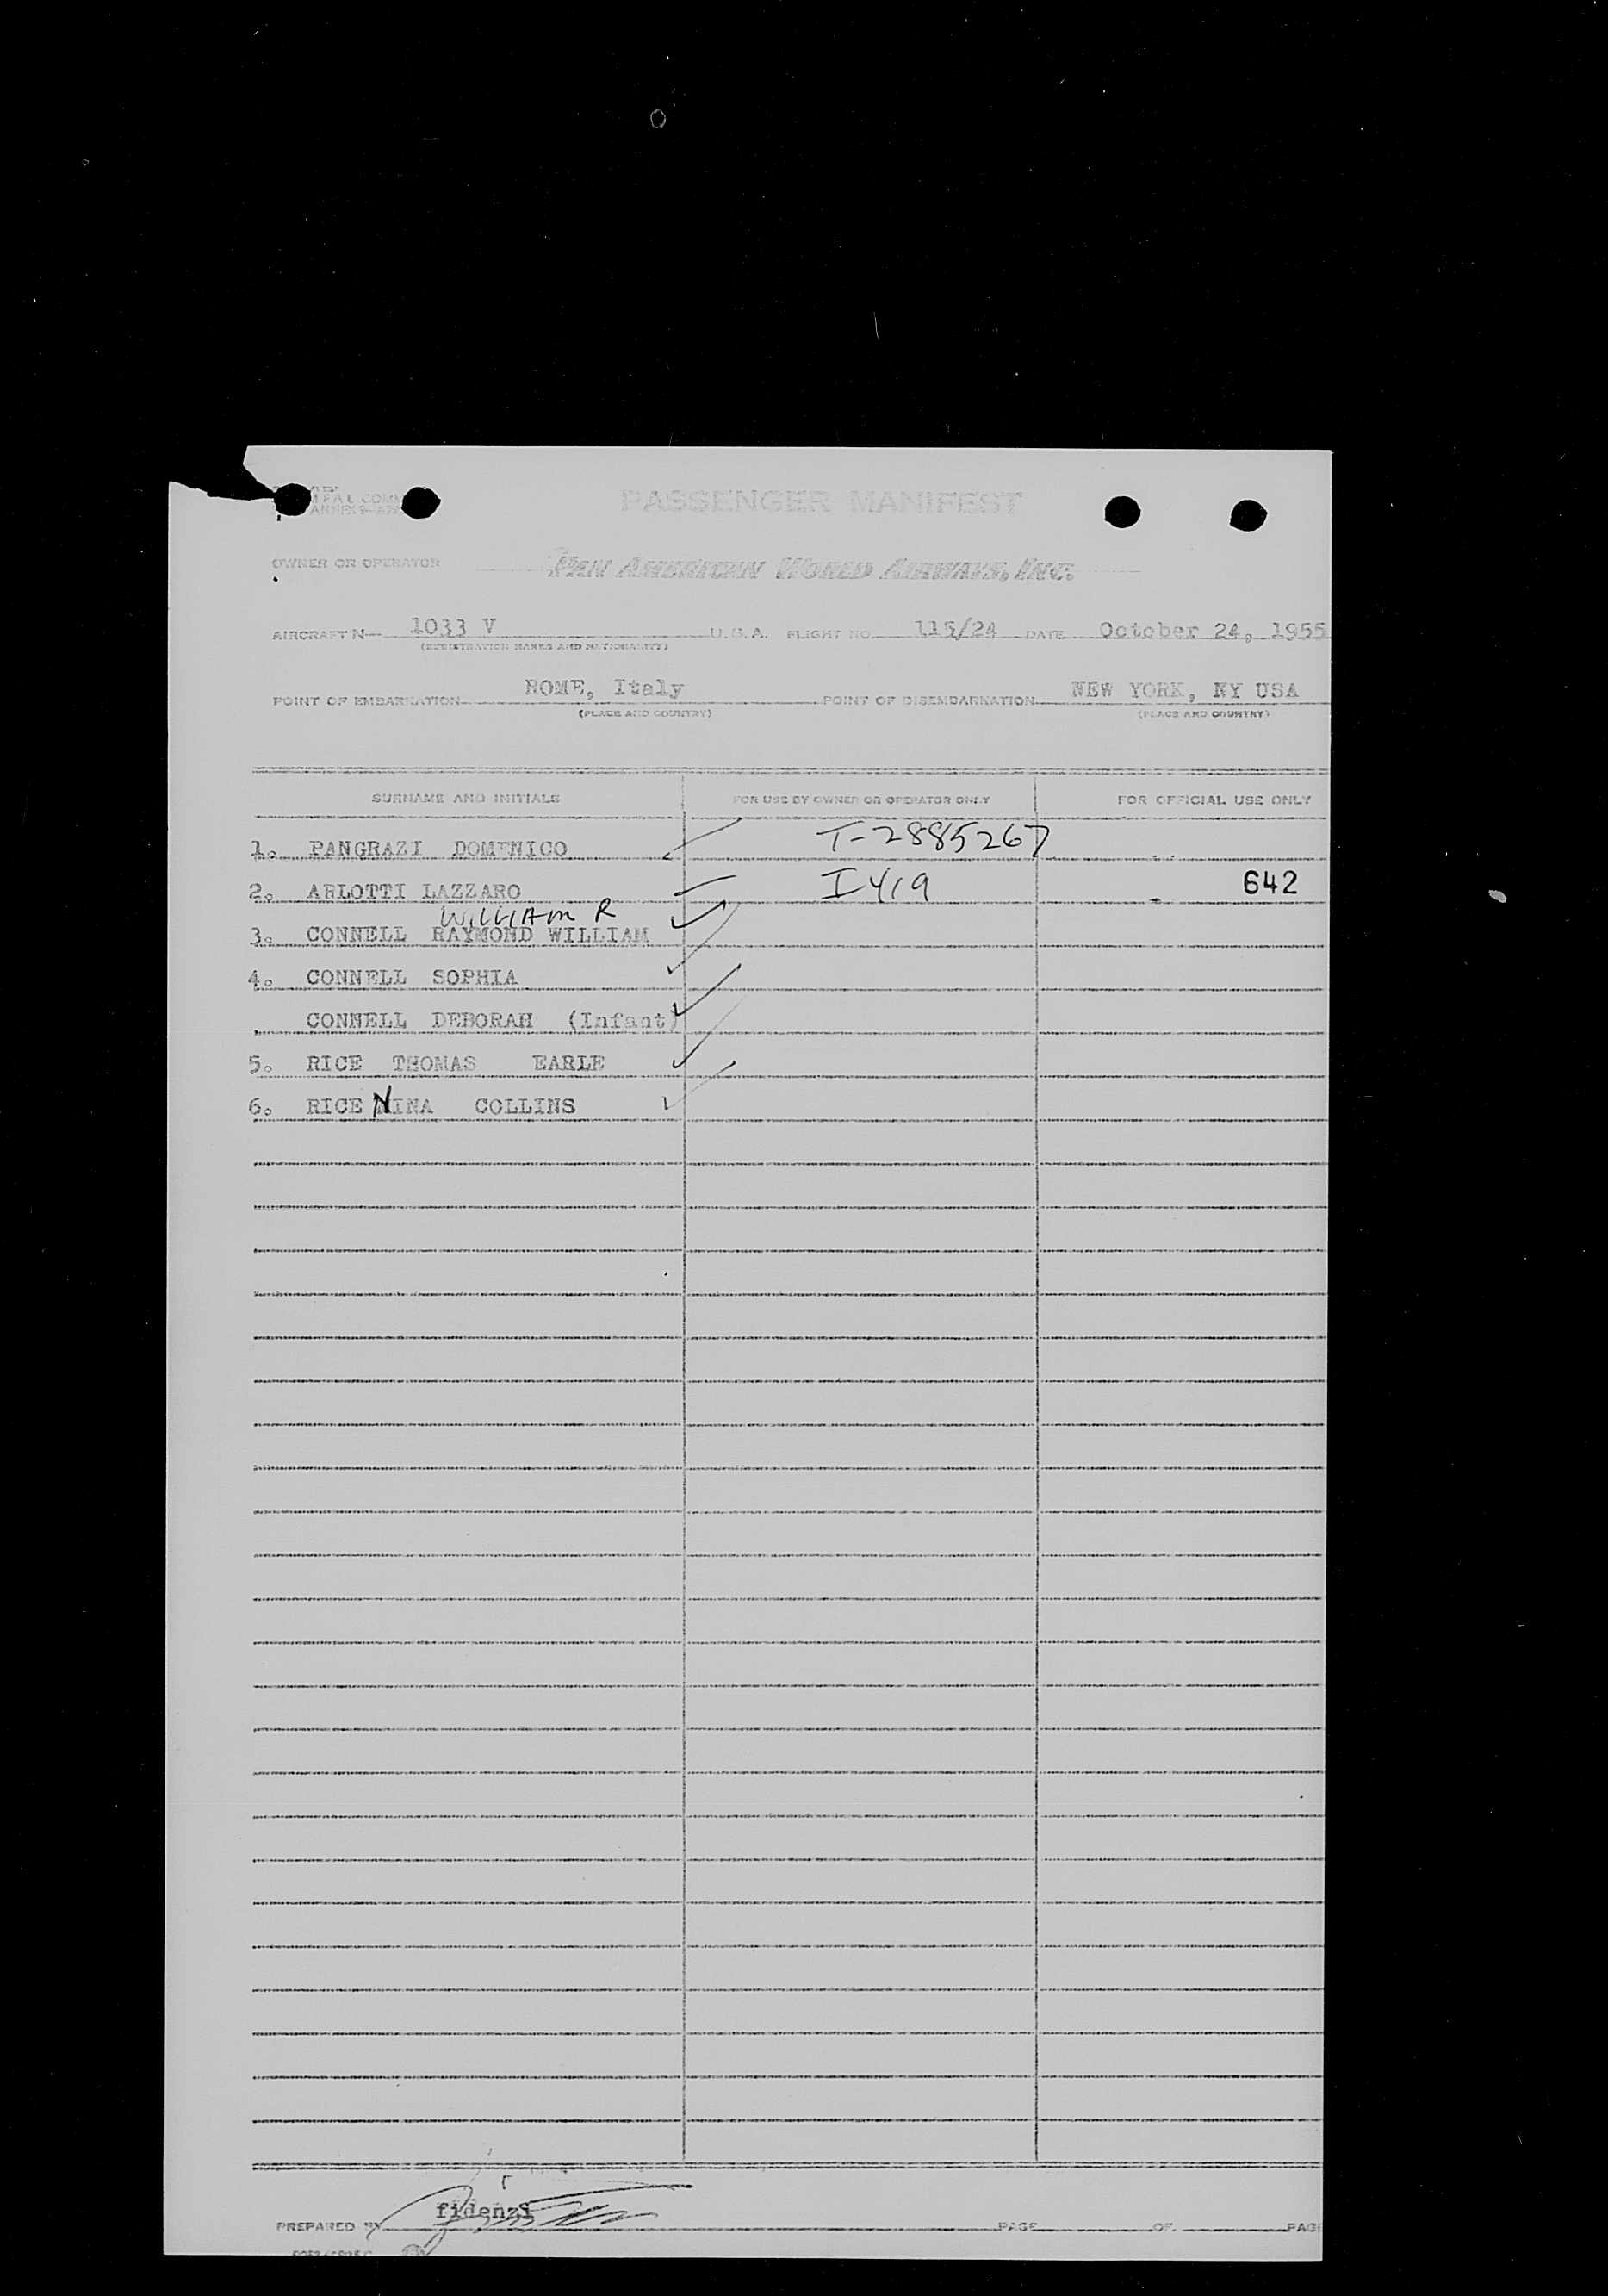 PASSENGER MANIFEST
OWNER OR OPERATOR PAN AMERICAN WORLD AIRWAYS, INC.
AIRCRAFT N— 1033 V U.S.A. FLIGHT NO. 115/24 DATE October 24, 1955
(REGISTRATION MARKS AND NATIONALITY)
POINT OF EMBARKATION ROME, Italy POINT OF DISEMBARKATION NEW YORK, NY USA
(PLACE AND COUNTRY) (PLACE AND COUNTRY)
SURNAME AND INITIALS FOR USE BY OWNER OR OPERATOR ONLY FOR OFFICIAL USE ONLY
1. PANGRAZI DOMENICO T-2885267
2. ARLOTTI LAZZARO I 419 642
WILLIAM R
3. CONNELL RAYMOND WILLIAM
4. CONNELL SOPHIA
CONNELL DEBORAH (Infant)
5. RICE THOMAS EARLE
6. RICE NINA COLLINS
fidenzi
PREPARED BY PAGE OF PAG